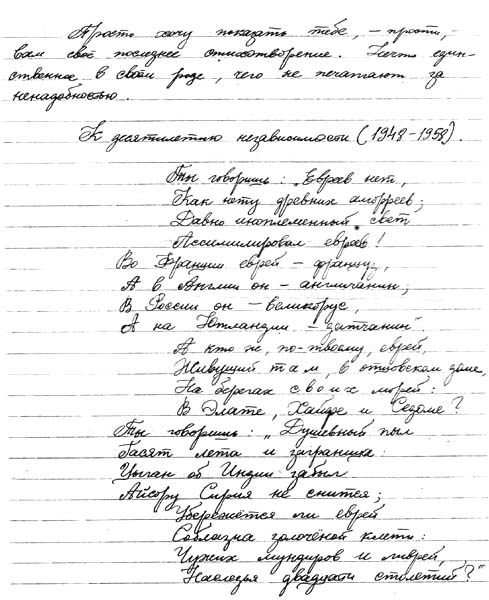 Просто хочу показать тебе, – прости, –
вам своё последнее стихотворение. Нечто един-
ственное в своём роде, чего не печатают за
ненадобностью.
К десятилетию независимости (1948–1958).
Ты говоришь: „Евреев нет,
Как нету древних аморреев;
Давно иноплеменный свет
Ассимилировал евреев!
Во Франции еврей – француз,
А в Англии он – англичанин;
В России он – великорус,
А на Ютландии – датчанин".
А кто ж, по-твоему, еврей,
Живущий там, в отцовском доме,
На берегах своих морей:
В Элате, Хайфе и Седоме?
Ты говоришь: „Душевный пыл
Гасят лета и заграница:
Цыган об Индии забыл
Айсору Сирия не снится;
Убережётся ли еврей
Соблазна золочёной клети:
Чужих мундиров и ливрей,
Наследья двадцати столетий?"